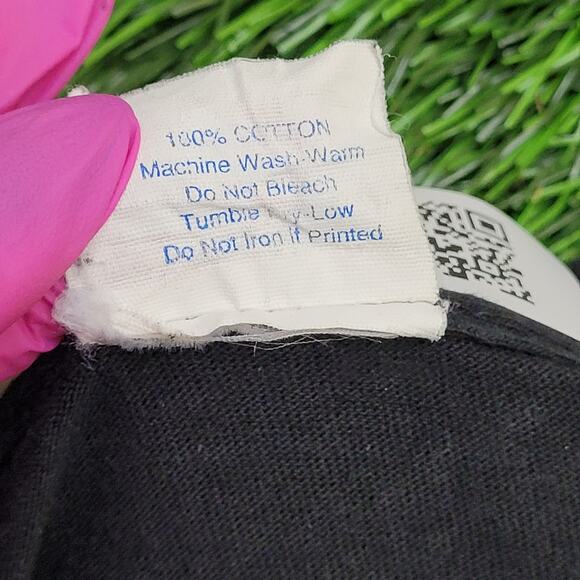 100% COTTON
Machine Wash-Warm
Do Not Bleach
Tumble Dry-Low
Do Not Iron if Printed